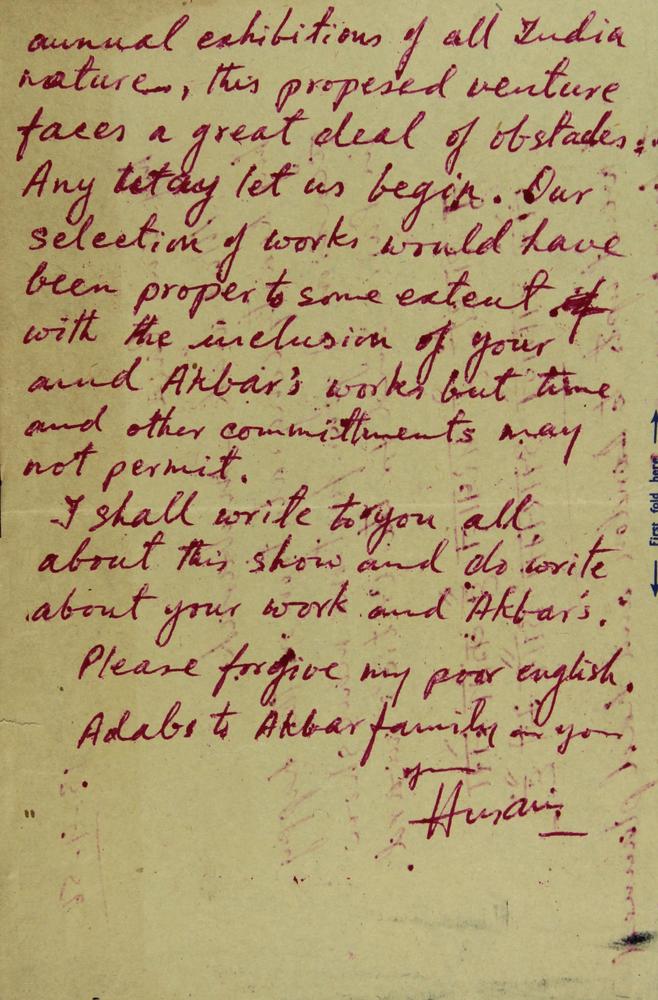 annual exhibitions of all India
nature, this proposed venture
faces a great deal of obstacles.
Any way let us begin. Our
selection of works would have
been proper to some extent
with the inclusion of your
and Akbar's works but time
and other committments may
not permit.
I shall write to you all
about this show and do write
about your work and Akbar's.
Please forgive my poor english.
Adabs to Akbar family &amp; you
Husain
First fold here